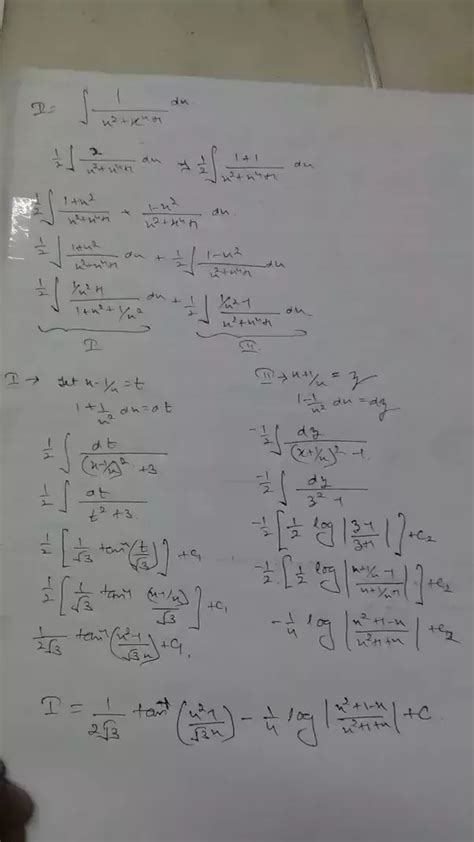 I = ∫ 1/(x²+x⁴+1) dx
1/2 ∫ 2/(x²+x⁴+1) dx → 1/2 ∫ (1+1)/(x²+x⁴+1) dx
1/2 ∫ (1+x²)/(x²+x⁴+1) + (1-x²)/(x²+x⁴+1) dx.
1/2 ∫ (1+x²)/(x²+x⁴+1) dx + 1/2 ∫ (1-x²)/(x²+x⁴+1) dx
1/2 ∫ (1/x²+1)/(1+x²+1/x²) dx + 1/2 ∫ (1/x²-1)/(x²+x⁴+1) dx
I II
I → let x-1/x = t
1+1/x² dx = dt
1/2 ∫ dt/((x-1/x)²+3)
1/2 ∫ dt/(t²+3)
1/2 [1/√3 tan⁻¹(t/√3)] + c₁
1/2 [1/√3 tan⁻¹ (x-1/x)/√3] + c₁
1/2√3 tan⁻¹((x²-1)/√3x) + c₁
II → x+1/x = z
1-1/x² dx = dz
-1/2 ∫ dz/((x+1/x)²-1)
-1/2 ∫ dz/(z²-1)
-1/2 [1/2 log |(z-1)/(z+1)|] + c₂
-1/2 [1/2 log |(x+1/x-1)/(x+1/x+1)|] + c₂
-1/4 log |(x²+1-x)/(x²+1+x)| + c₂
I = 1/2√3 tan⁻¹((x²-1)/√3x) - 1/4 log |(x²+1-x)/(x²+1+x)| + C